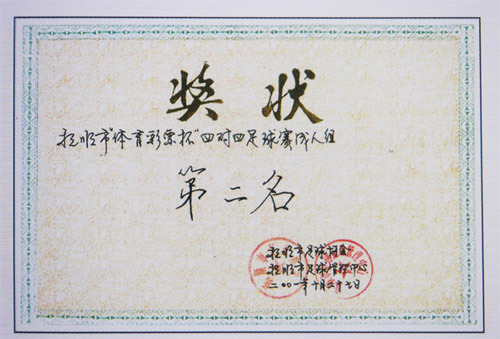 奖状
抚顺市"体育彩票杯"四对四足球赛成人组
第二名
抚顺市足球协会
抚顺市足球管理中心
二〇〇一年十月二十七日